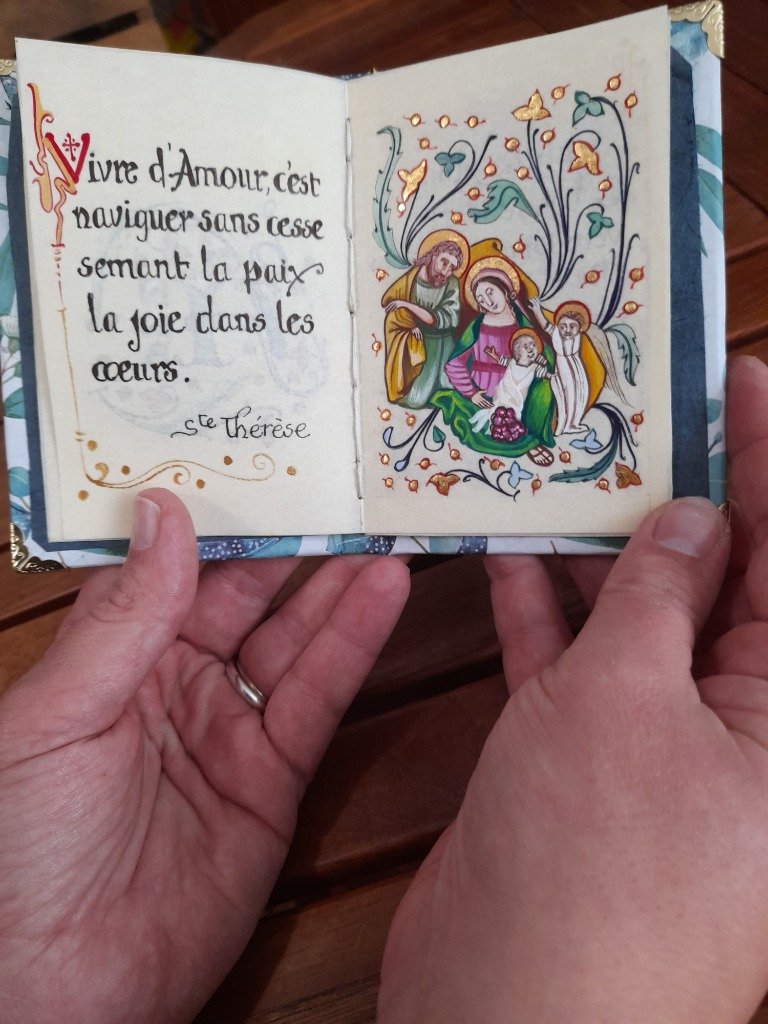 Vivre d'Amour, c'est
naviguer sans cesse
semant la paix
la joie dans les
cœurs.
Ste Thérèse